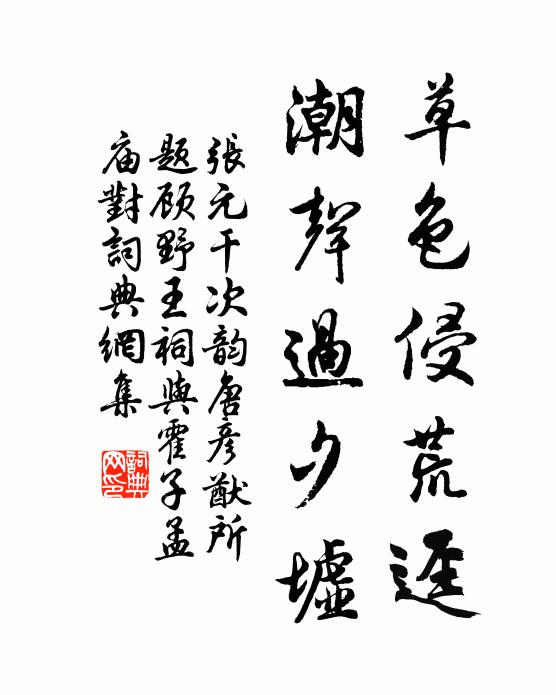 草色侵荒逕
潮聲過夕墟
張元干次韵唐彦猷所
题顾野王祠與霍子孟
庙對詞典網集
詞典
网印